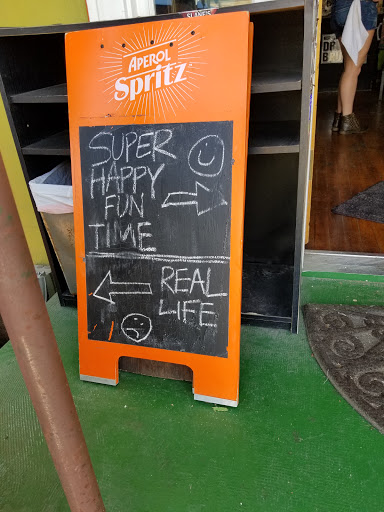 APEROL
Spritz
SUPER
HAPPY
FUN
TIME
REAL
LIFE